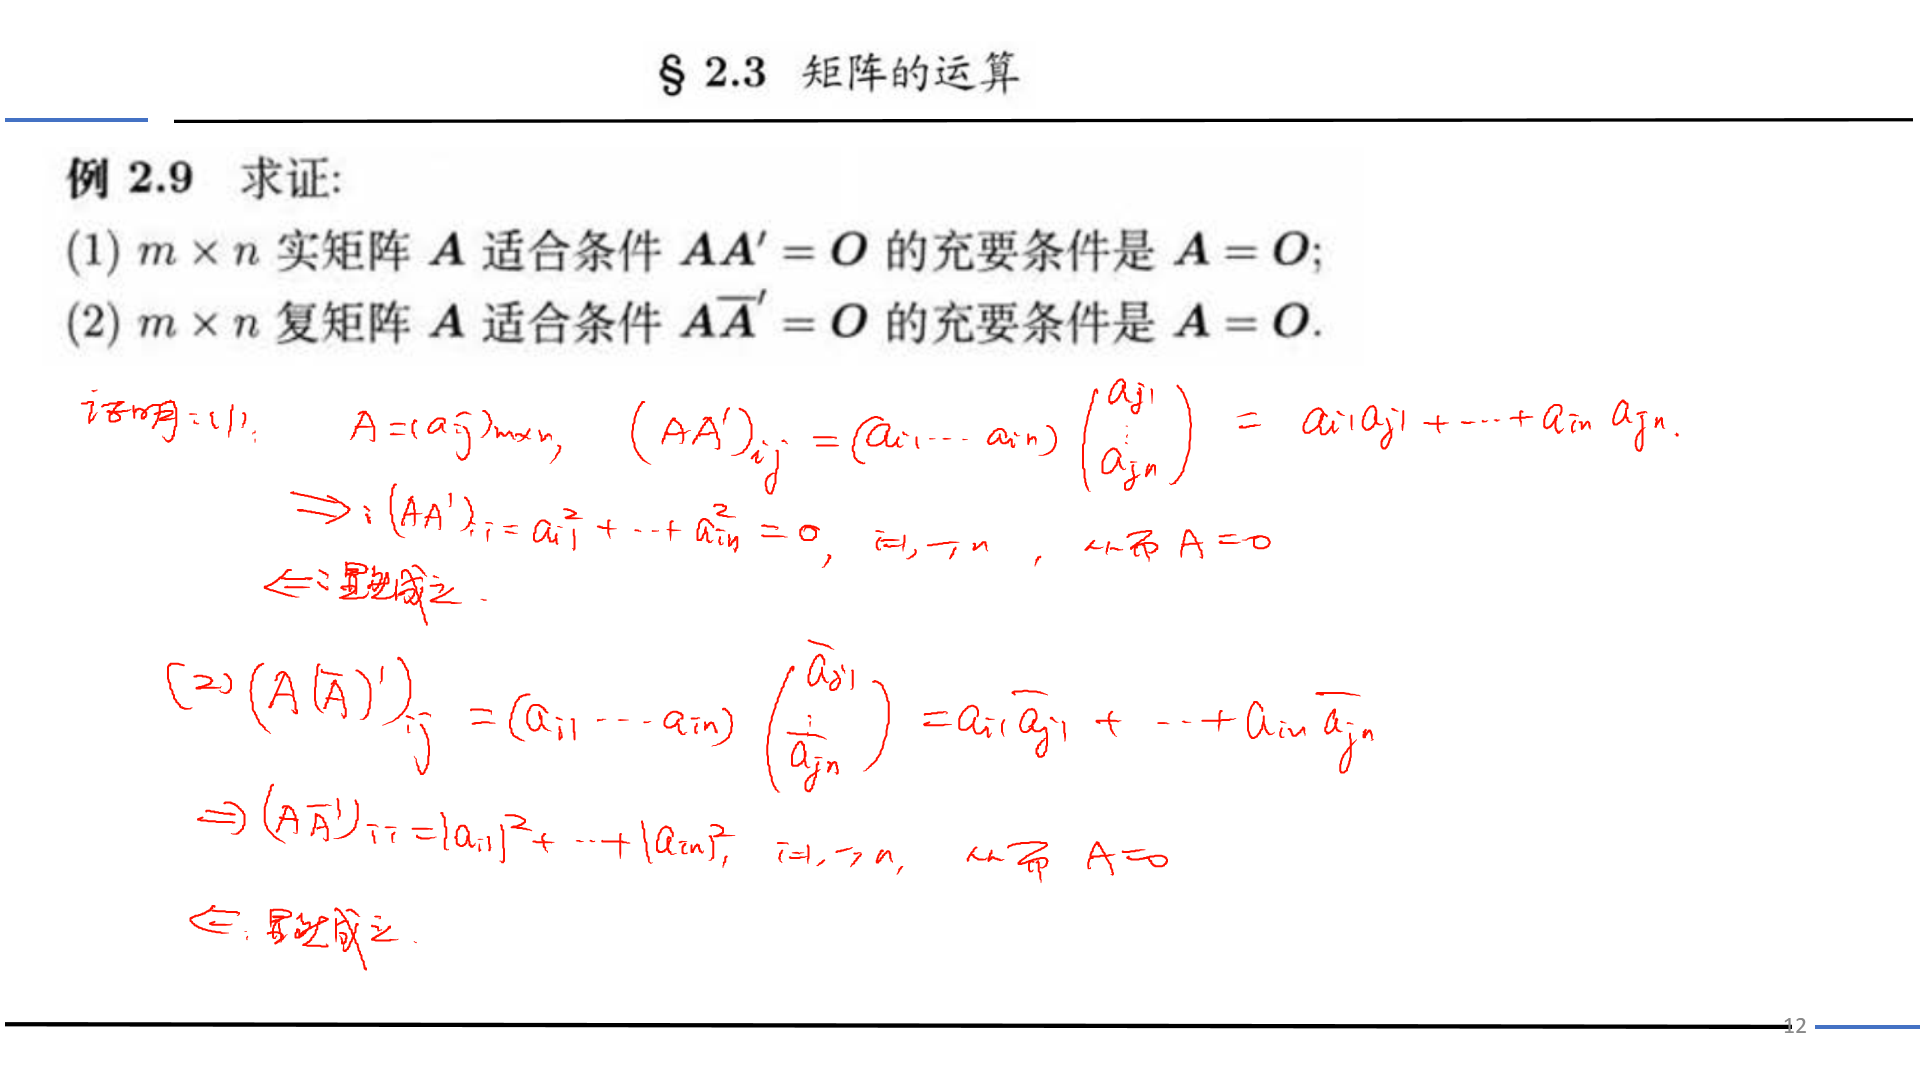 § 2.3 矩阵的运算
例 2.9 求证:
(1) m × n 实矩阵 A 适合条件 AA′ = O 的充要条件是 A = O;
(2) m × n 复矩阵 A 适合条件 AA̅′ = O 的充要条件是 A = O.
证明:(1). A=(aij)m×n, (AA')ij = (ai1 ··· ain) (aj1 ⋮ ajn) = ai1aj1 + ··· + ain ajn.
⇒: (AA')ii = ai1² + ··· + ain² = 0, i=1,···,n, 从而 A=0
⇐: 显然成立.
(2) (A(A̅)')ij = (ai1 ··· ain) (a̅j1 ⋮ a̅jn) = ai1 a̅j1 + ··· + ain a̅jn
⇒ (AA̅')ii = |ai1|² + ··· + |ain|², i=1,···,n, 从而 A=0
⇐: 显然成立.
12